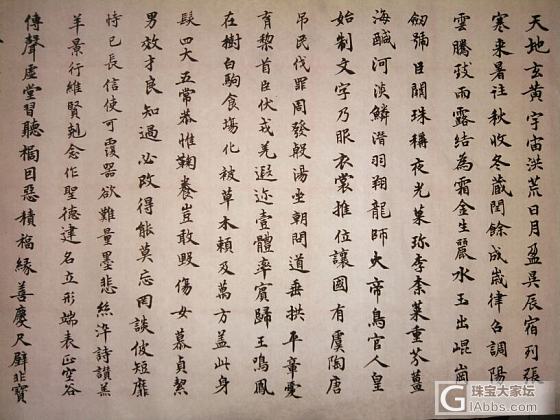 天地玄黄宇宙洪荒日月盈昃辰宿列張
寒来暑往秋收冬蔵閏餘成歲律吕調陽
雲騰致雨露結為霜金生麗水玉出崐崗
劒號巨闕珠稱夜光菓珎李柰菜重芥薑
海鹹河淡鱗潛羽翔龍師火帝鳥官人皇
始制文字乃服衣裳推位讓國有虞陶唐
吊民伐罪周發殷湯坐朝問道垂拱平章愛
育黎首臣伏戎羌遐迩壹體率賓歸王鳴鳳
在樹白駒食塲化被草木頼及萬方盖此身
髮四大五常恭惟鞠養豈敢毀傷女慕貞絜
男效才良知過必改得能莫忘罔談彼短靡
恃己長信使可覆器欲難量墨悲絲淬詩讃羔
羊景行維賢剋念作聖徳建名立形端表正空谷
傳聲虚堂習聽禍因惡積福縁善慶尺璧非寶
珠宝大家坛
GIAbbs.com